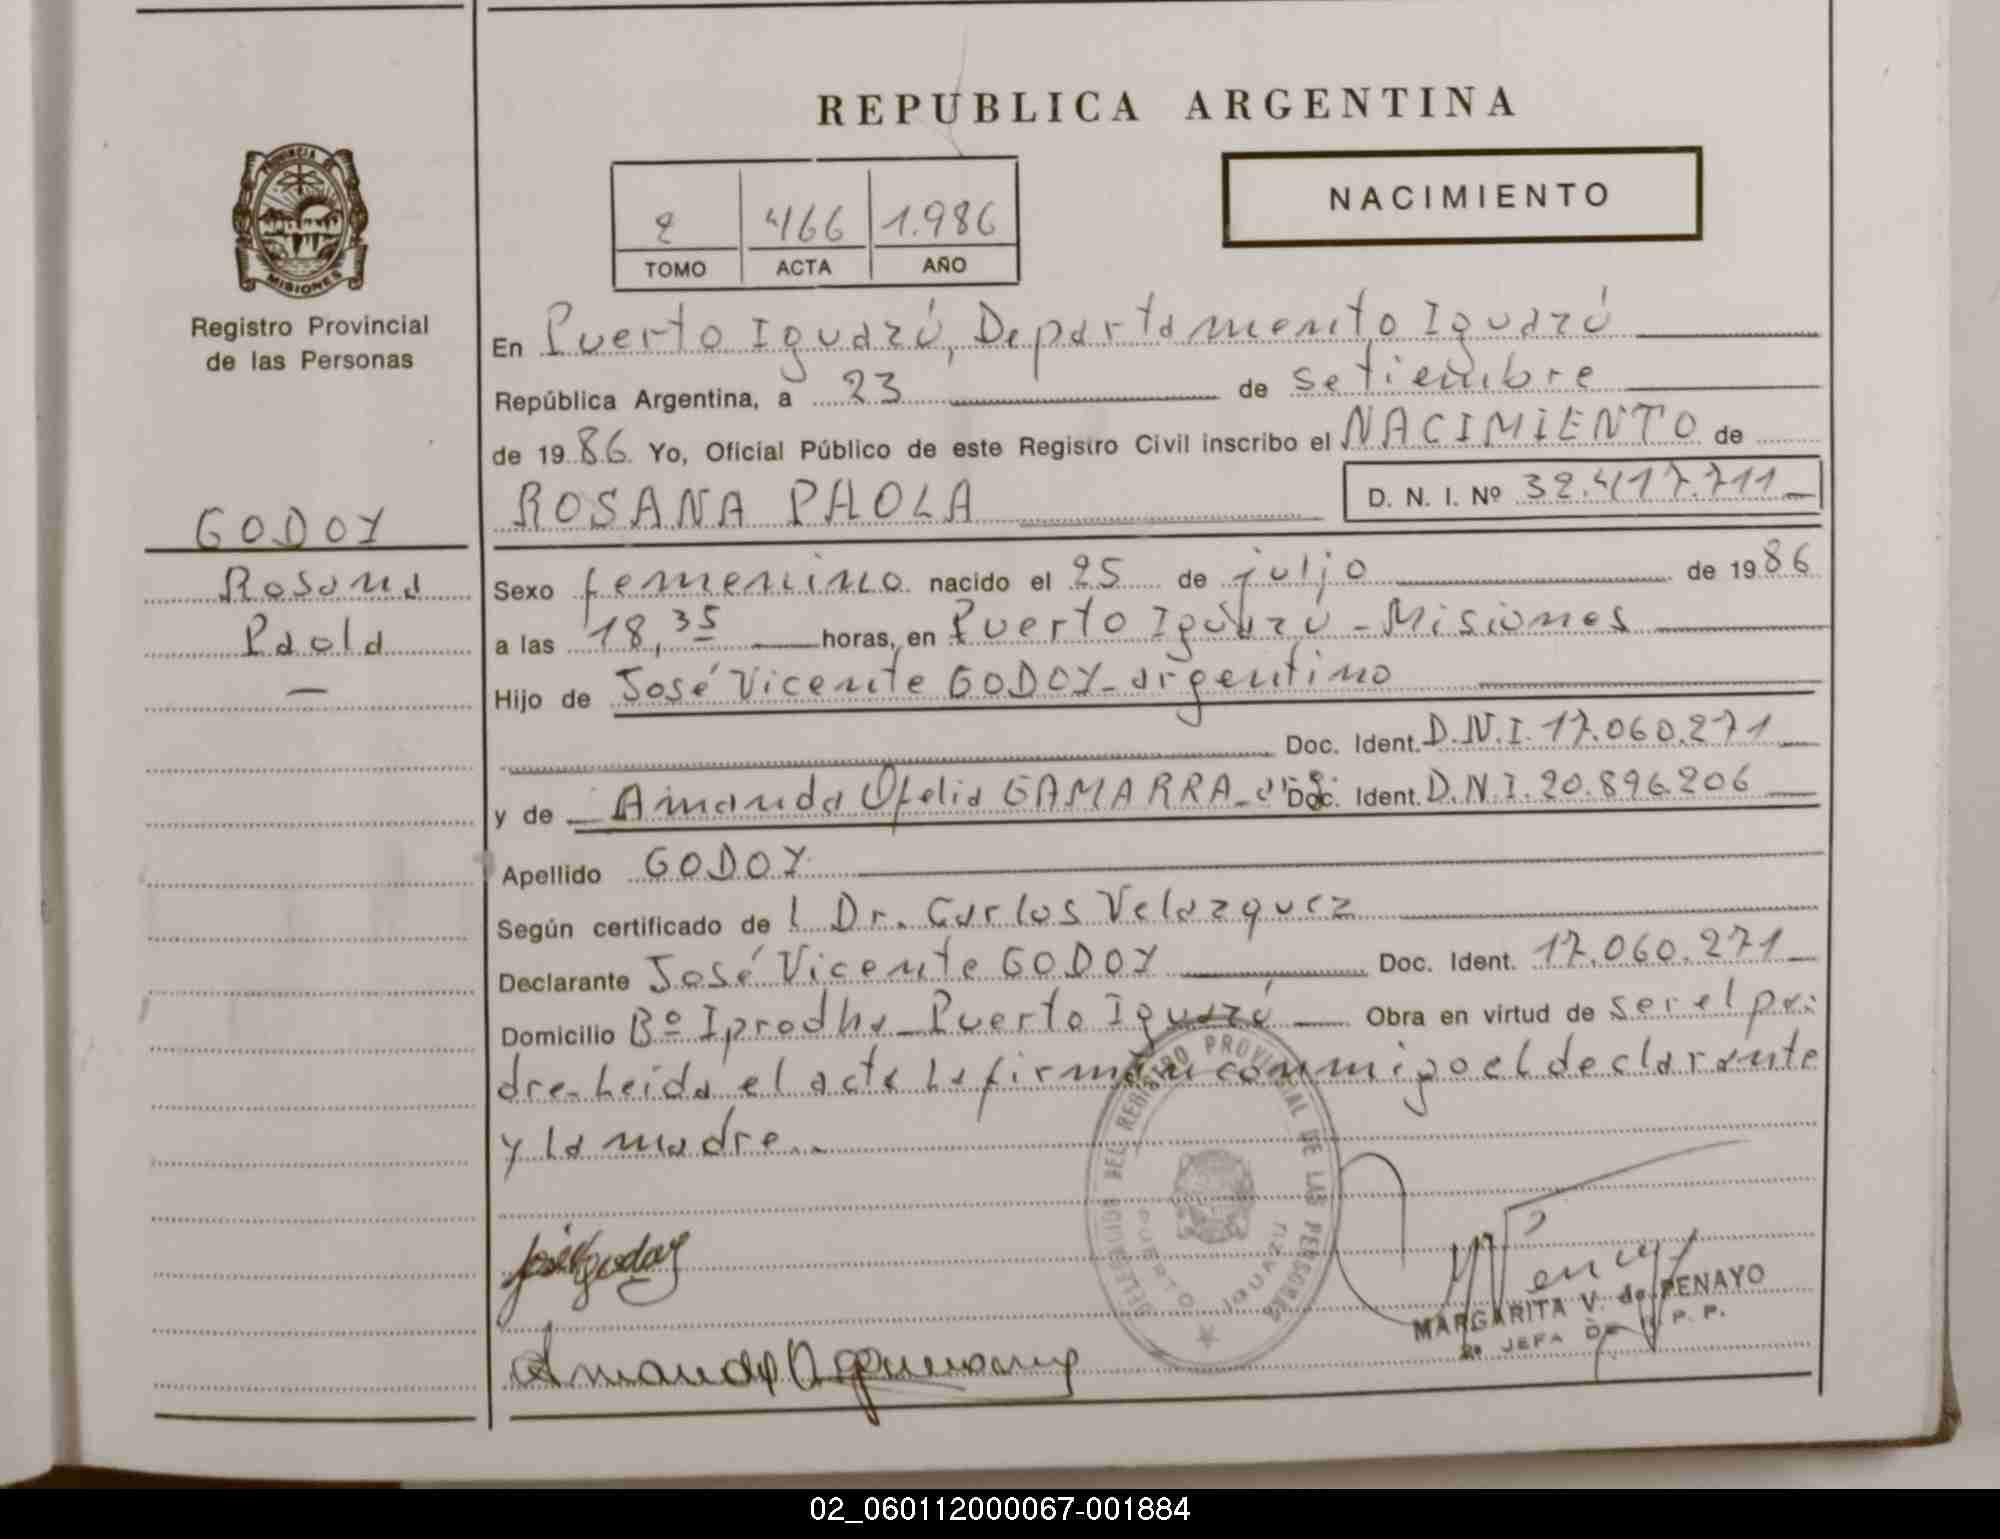 REPUBLICA ARGENTINA
NACIMIENTO
PROVINCIA DE
MISIONES
Registro Provincial
de las Personas
2 466 1.986
TOMO ACTA AÑO
En Puerto Iguazú, Departamento Iguazú
República Argentina, a 23 de setiembre
de 1986 Yo, Oficial Público de este Registro Civil inscribo el NACIMIENTO de
ROSANA PAOLA D. N. I. Nº 32.417.711
GODOY
Rosana
Paola
Sexo femenino nacido el 25 de julio de 1986
a las 18,35 horas, en Puerto Iguazú - Misiones
Hijo de José Vicente GODOY - argentino
Doc. Ident. D.N.I. 17.060.271
y de Amanda Ofelia GAMARRA - Doc. Ident. D.N.I. 20.896.206
Apellido GODOY
Según certificado de l Dr. Carlos Velazquez
Declarante José Vicente GODOY Doc. Ident. 17.060.271
Domicilio Bº Iprodha - Puerto Iguazú Obra en virtud de ser el pa-
dre - Leida el acta la firman conmigo el declarante
y la madre.-
DELEGACION DEL REGISTRO PROVINCIAL DE LAS PERSONAS
PUERTO IGUAZU
José V godoy
MARGARITA V. de PENAYO
JEFA DE R. P. P.
Amanda O gamarra
02_060112000067-001884